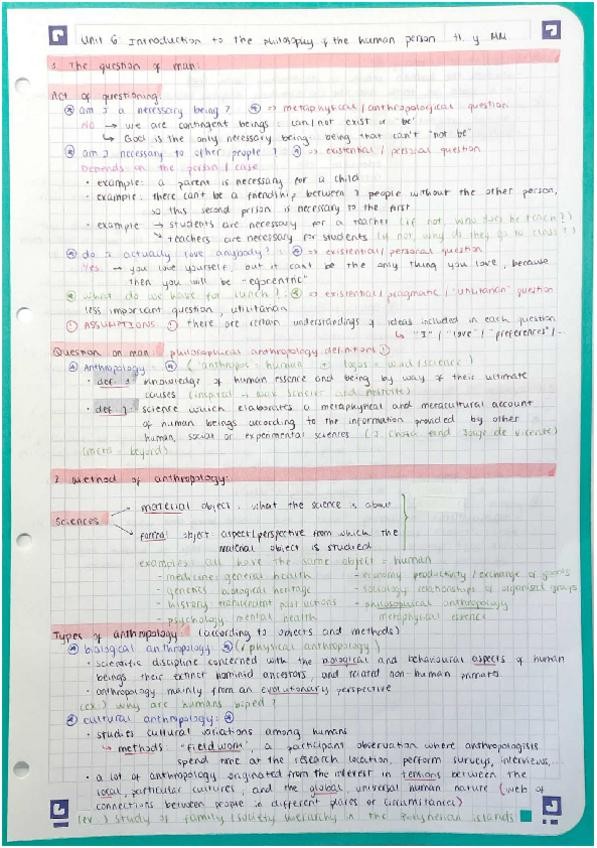 Unit 6 Introduction to the philosophy of the human person
1. The question of man:
Act of questioning:
am I a necessary being? => metaphysical / anthropological question
NO → we are contingent beings: can / not exist or "be"
↳ God is the only necessary being: being that can't "not be"
am I necessary to other people? => existential / personal question
Depends on the person / case
• example: a parent is necessary for a child
• example: there can't be a friendship between 2 people without the other person,
so this second person is necessary to the first
• example → students are necessary for a teacher (if not, who does he teach?)
↳ teachers are necessary for students (if not, why do they go to class?)
do I actually love anybody? => existential / personal question
Yes → you love yourself, but it can't be the only thing you love, because
then you will be "egocentric"
what do we have for lunch? => existential / pragmatic / "utilitarian" question
less important question, utilitarian
① ASSUMPTIONS ① there are certain understandings of ideas included in each question
↳ "I" / "love" / "preferences" / ...
Question on man: philosophical anthropology definitions ①
Anthropology: (anthropos = human + logos = word / science)
• def 1: knowledge of human essence and being by way of their ultimate
causes (inspired → Max Scheler and
• def 2: science which elaborates a metaphysical and metacultural account
of human beings according to the information provided by other
human, social or experimental sciences (J. Choza and Jorge de Vicente)
(meta = beyond)
2 Method of anthropology:
material object: what the science is about
Sciences
formal object: aspect / perspective from which the
material object is studied
examples: all have the same object = human
- medicine: general health - economy: productivity / exchange of goods
- genetics: biological heritage - sociology: relationships of organised groups
- history: past actions - philosophical anthropology:
- psychology: mental health metaphysical essence
Types of anthropology: (according to objects and methods)
biological anthropology: (physical anthropology)
• scientific discipline concerned with the biological and behavioural aspects of human
beings, their extinct hominid ancestors, and related non-human primates
• anthropology mainly from an evolutionary perspective
(ex.) why are humans biped?
cultural anthropology:
• studies cultural variations among humans
↳ methods: "fieldwork", a participant observation where anthropologists
spend time at the research location, perform surveys, interviews,...
• a lot of anthropology originated from the interest in tensions between the
local, particular cultures, and the global, universal human nature (web of
connections between people in different places or circumstances)
(ex.) study of family / society hierarchy in the Polynesian islands